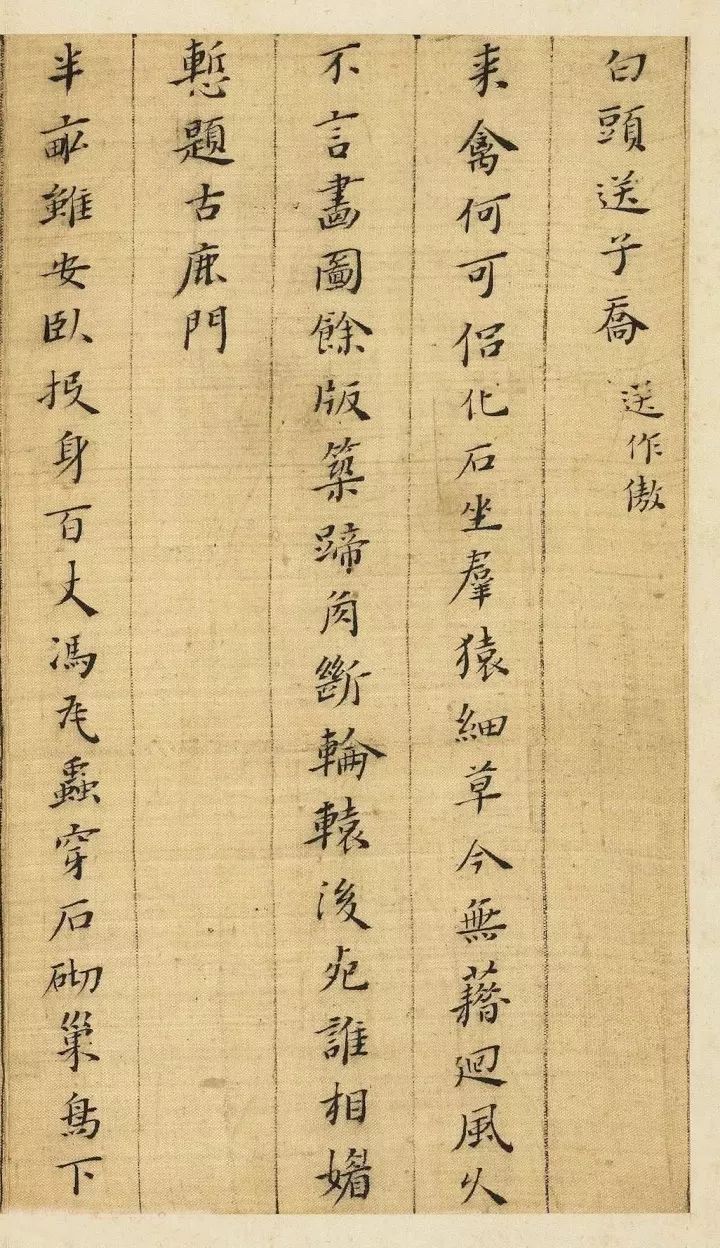 白頭送子喬 送作傲
来禽何可侣化石坐羣猿細草今無藉迴風久
不言畫圖餘版築蹄肉斷輪轅後死誰相媚
慙題古鹿門
半畝雖安臥投身百丈馮蟲穿石砌巢鳥下